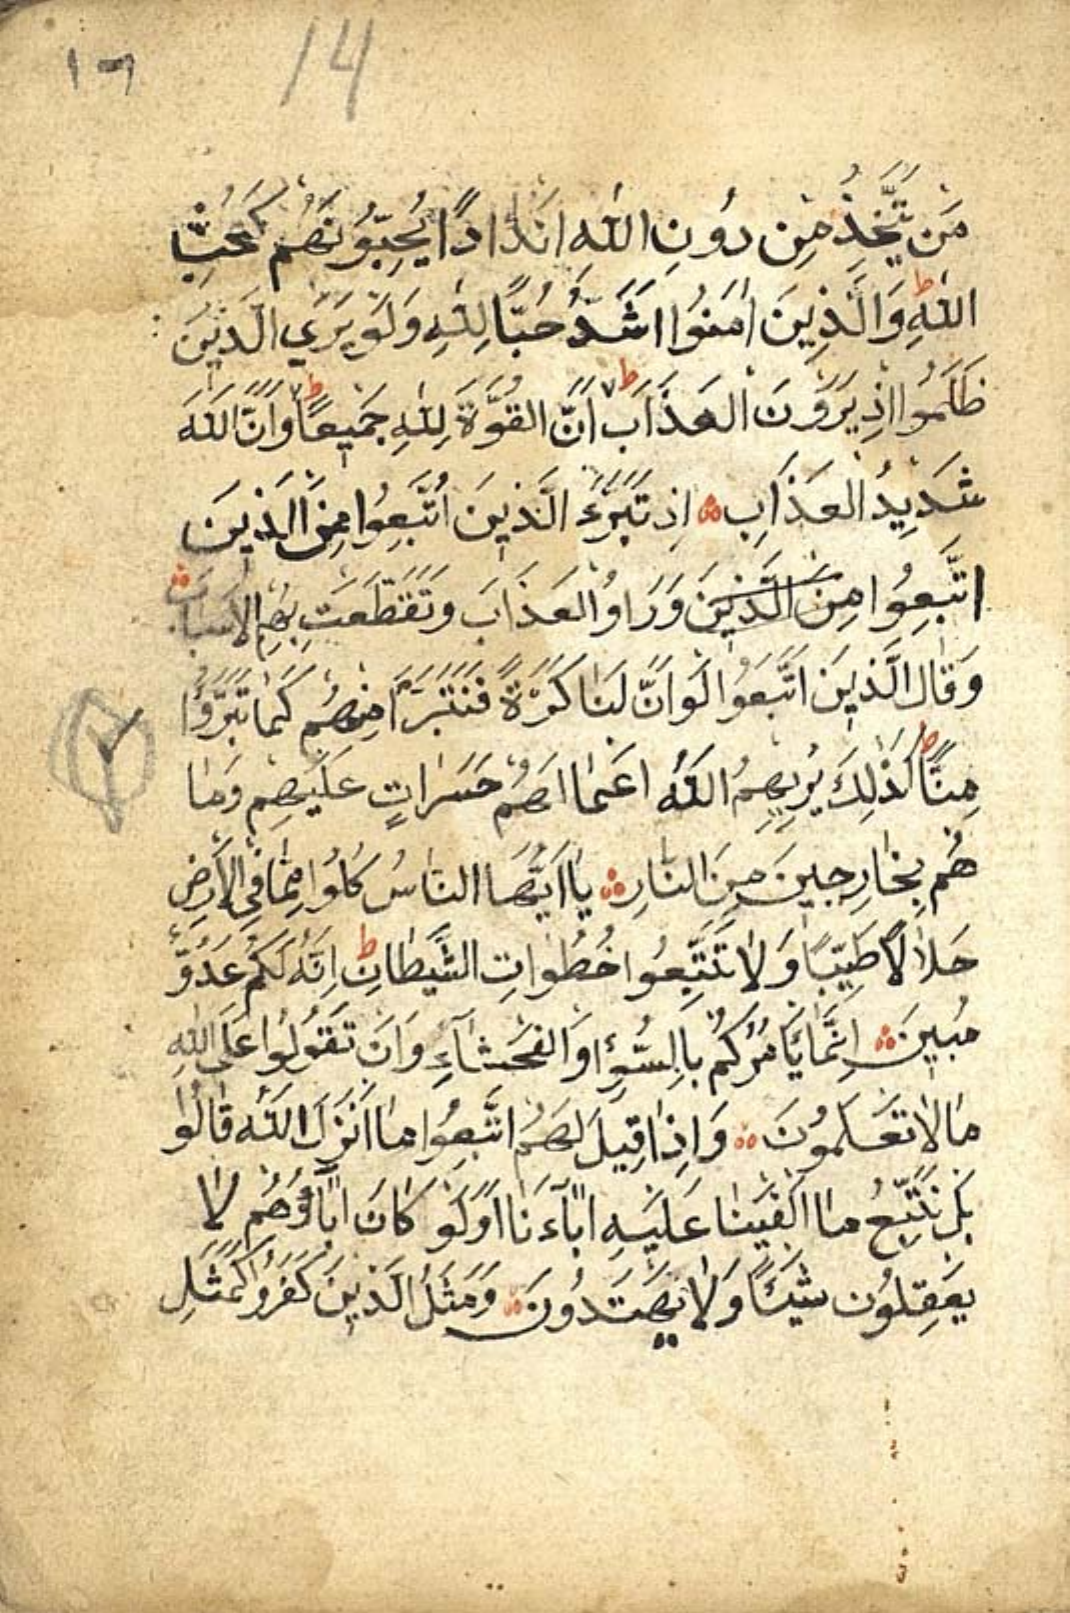 ١٦ 14
مَن يَتَّخِذُ مِن دُونِ اللهِ اَندَادًا يُحِبُّونَهُم كَحُبِّ
اللهِ ط وَالَّذِينَ اٰمَنُوا اَشَدُّ حُبًّا لِلّٰهِ وَلَو يَرَي الَّذِينَ
ظَلَمُوا اِذ يَرَونَ العَذَابَ ط اَنَّ القُوَّةَ لِلّٰهِ جَمِيعًا ط وَاَنَّ اللهَ
شَدِيدُ العَذَابِ اِذ تَبَرَّءَ الَّذِينَ اُتُّبِعُوا مِنَ الَّذِينَ
اتَّبِعُوا مِنَ الَّذِينَ وَرَاَوُا العَذَابَ وَتَقَطَّعَت بِهِمُ الاَسبَابُ
وَقَالَ الَّذِينَ اتَّبَعُوا لَو اَنَّ لَنَا كَرَّةً فَنَتَبَرَّاَ مِنهُم كَمَا تَبَرَّؤُا
مِنَّا ط كَذٰلِكَ يُرِيهِمُ اللهُ اَعمَالَهُم حَسَرَاتٍ عَلَيهِم وَمَا
هُم بِخَارِجِينَ مِنَ النَّارِ يَا اَيُّهَا النَّاسُ كُلُوا مِمَّا فِي الاَرضِ
حَلَالًا طَيِّبًا وَلَا تَتَّبِعُوا خُطُوَاتِ الشَّيطَانِ ط اِنَّهُ لَكُم عَدُوٌّ
مُبِينٌ اِنَّمَا يَامُرُكُم بِالسُّوءِ وَالفَحشَاءِ وَاَن تَقُولُوا عَلَي اللهِ
مَا لَا تَعلَمُونَ وَاِذَا قِيلَ لَهُمُ اتَّبِعُوا مَا اَنزَلَ اللهُ قَالُوا
بَل نَتَّبِعُ مَا اَلفَينَا عَلَيهِ اٰبَآءَنَا اَوَلَو كَانَ اٰبَآؤُهُم لَا
يَعقِلُونَ شَيئًا وَلَا يَهتَدُونَ وَمَثَلُ الَّذِينَ كَفَرُوا كَمَثَلِ